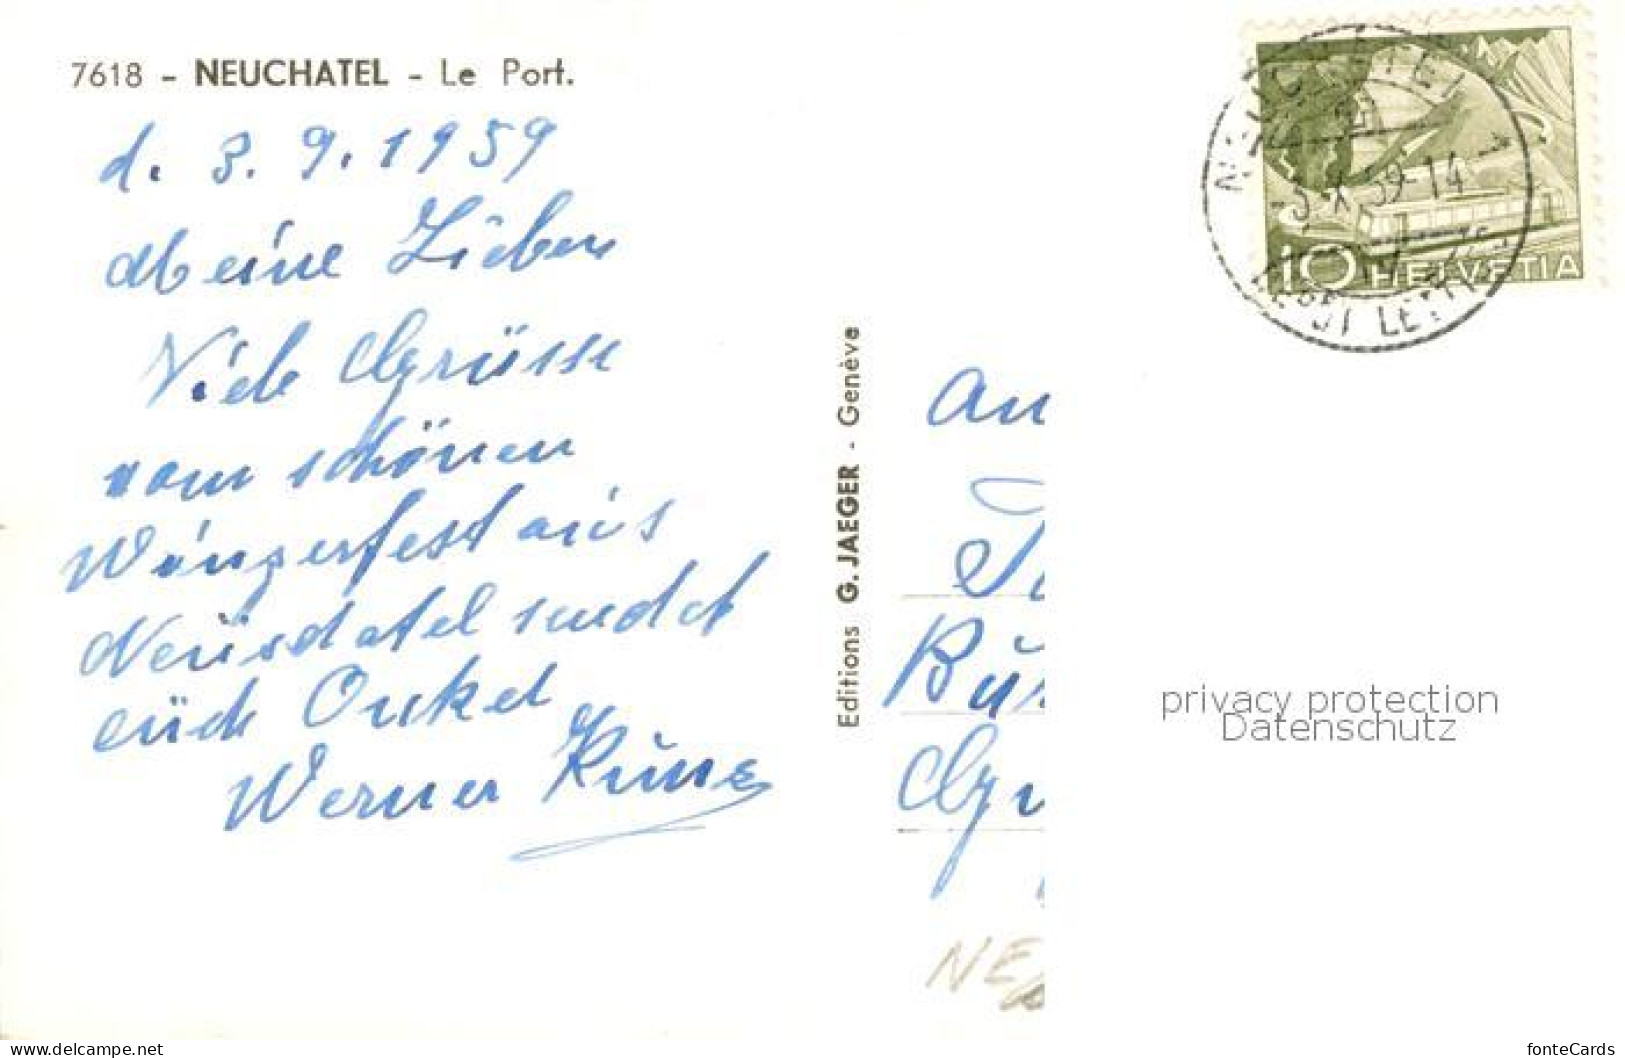 7618 - NEUCHATEL - Le Port.
d. 3. 9. 1959
Meine Lieben
Viele Grüsse
vom schönen
Winzerfest aus
Neuschatel sendet
eüch Onkel
Werner
Editions G. JAEGER - Genève
NEUCHATEL
59-14
10 HELVETIA
An
privacy protection
Datenschutz
https://www.delcampe.net
fonteCards